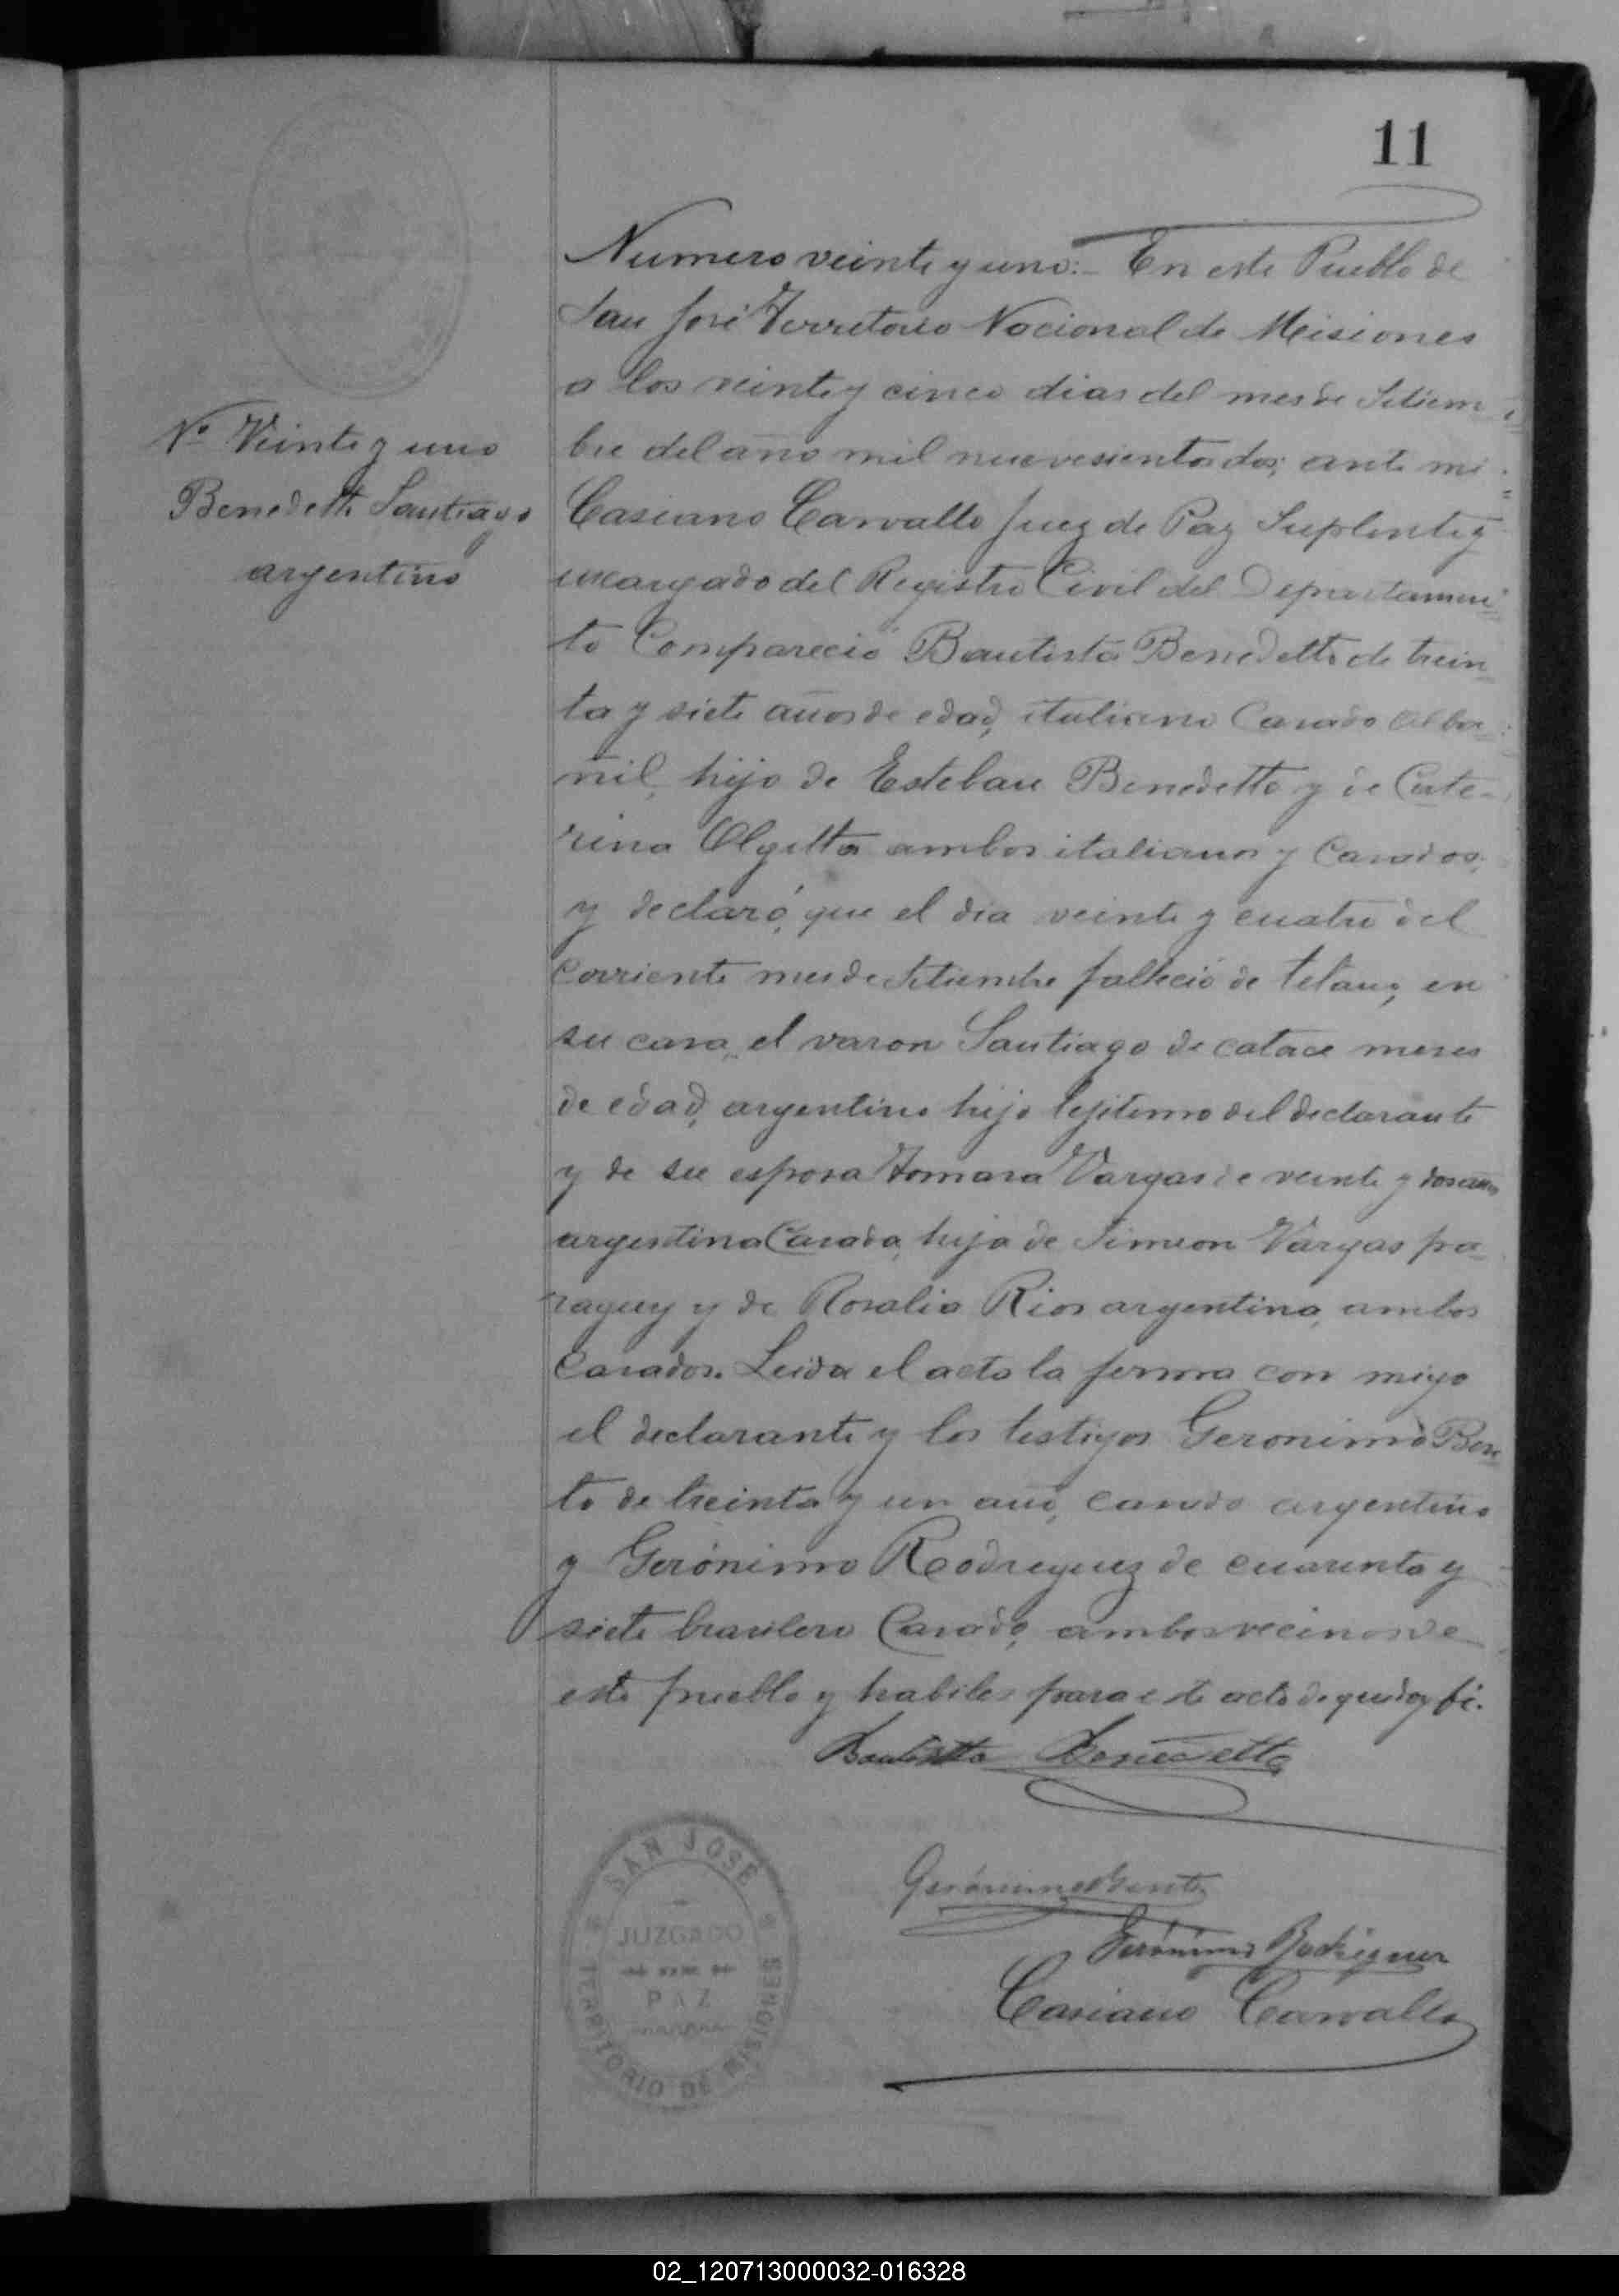 11
Numero veinte y uno:- En este Pueblo de
San José Territorio Nacional de Misiones
a los veinte y cinco dias del mes de Setiem
bre del año mil nuevesientos dos; ante mi
Casiano Carvallo Juez de Paz Suplente y
encargado del Registro Civil del Departamen
to Compareció Bautista Benedetto de trein
ta y siete años de edad, italiano Casado alba
ñil, hijo de Esteban Benedetto y de Cate-
rina ambos italianos y Casados,
y declaró, que el dia veinte y cuatro del
corriente mes de Setiembre falleció de tetano, en
su casa, el varon Santiago de catace meses
de edad, argentino hijo lejitimo del declarante
y de su esposa Tomasa Vargas de veinte y dos años
argentina Casada, hija de Simeon Vargas pa
raguay y de Rosalia Rios argentina, ambos
Casados. Leida el acta la firma con migo
el declarante y los testigos Geronimo Ben
to de treinta y un año, casado argentino
y Gerónimo Rodreguez de cuarenta y
siete brasilero Casado, ambos vecinos de
este pueblo y habiles para este acto de que doy fé.
Nº Veinte y uno
Benedetto Santiago
argentino
Bautista Benedetto
Gerónimo Bento
Gerónimo Rodriguez
Casiano Carvallo
SAN JOSÉ
JUZGADO
DE
PAZ
TERRITORIO DE MISIONES
02_120713000032-016328